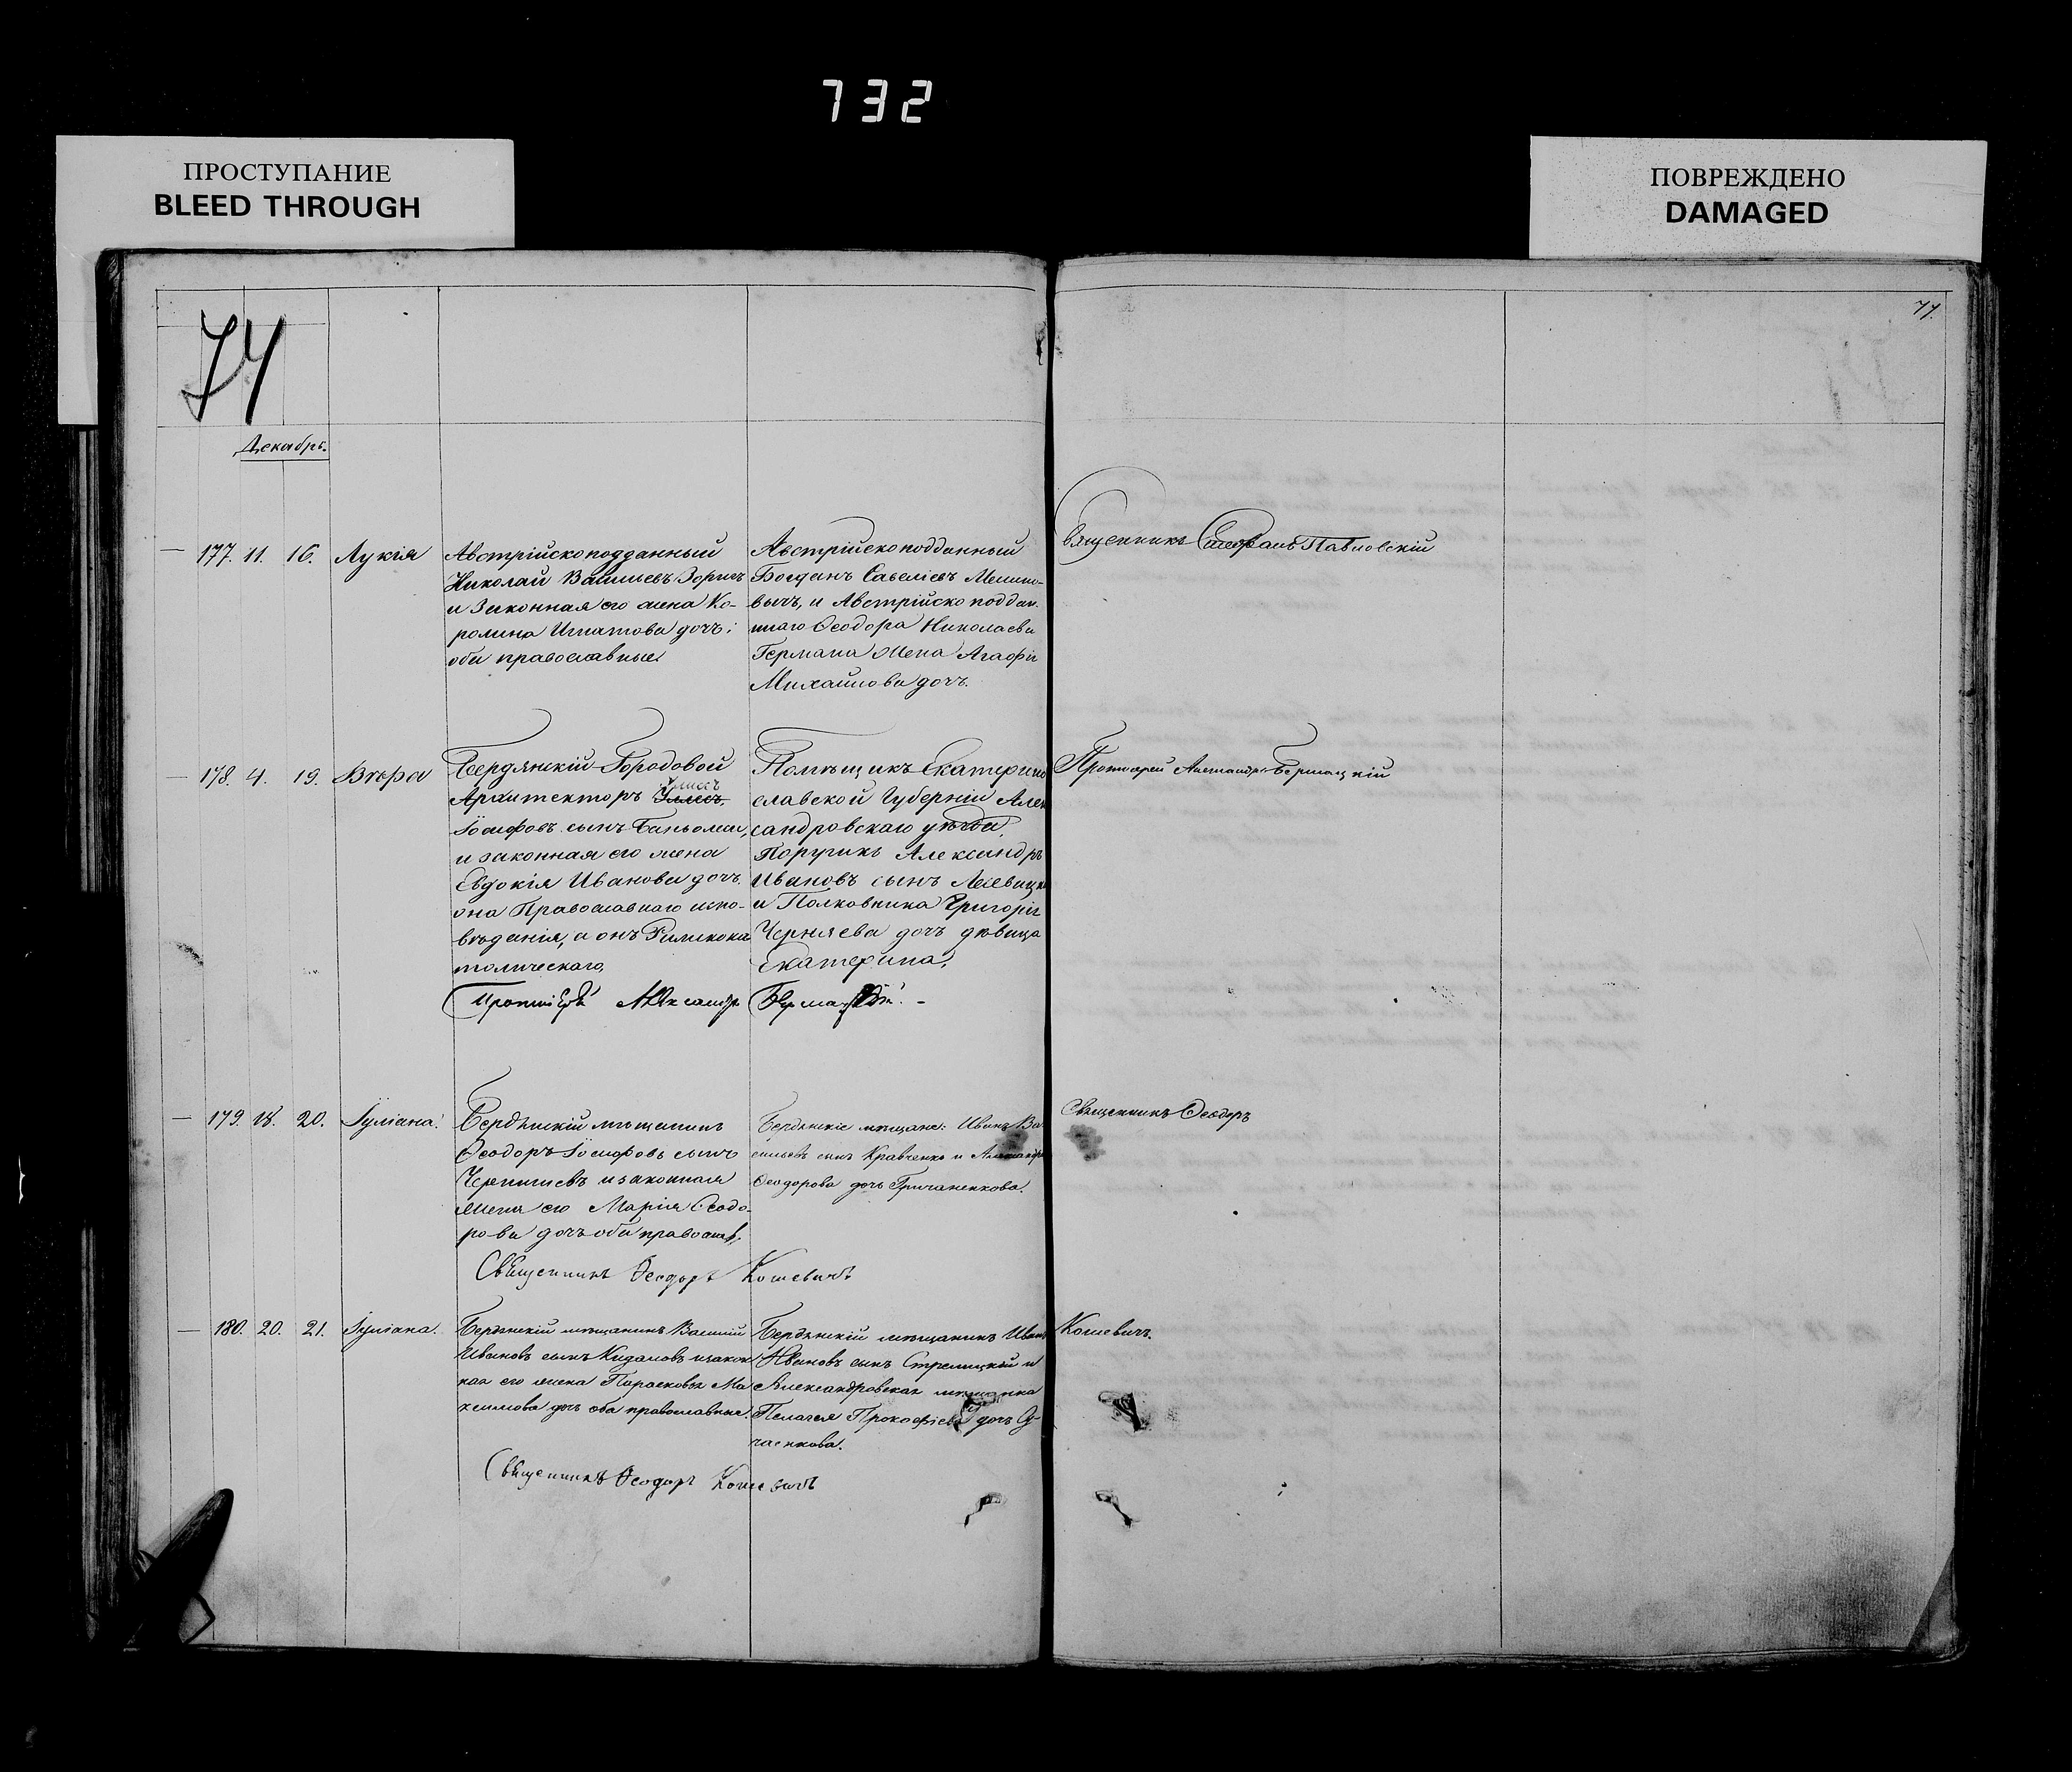 732
ПРОСТУПАНИЕ
BLEED THROUGH
ПОВРЕЖДЕНО
DAMAGED
74
77.
Декабрь.
177. 11. 16. Лукія
Австрійскоподданный
Николай Васильевъ Зоричъ
и Законная его жена Ко-
ролина Игнатова дочь;
оба православные
Австрійскоподданный
Богданъ Савеліевъ
вычъ, и Австрійско поддан-
наго Ѳеодора Николаева
Германа Жена Агафія
Михайлова дочь.
Священникъ Стефанъ Павловскій
178. 4. 19. Вѣра
Бердянскій Городовой
Архитекторъ
Іосифовъ сынъ
и законная его жена
Евдокія Иванова дочь.
она Православнаго испо-
вѣданія, а онъ Римскока
толическаго,
Помѣщикъ Екатерино
славской Губерніи Алек
сандровскаго уѣзда,
Поручикъ Александръ
Ивановъ сынъ
и Полковника Григорія
Черняева дочь дѣвица
Екатерина,
Протоіерей Александръ
Протоіерей Александръ
179. 18. 20. Іуліана.
Бердянскій мѣщанинъ
Ѳеодоръ Іосифовъ сынъ
и законная
жена его Марія Ѳеодо-
рова дочь оба православ.
Бердянскіе мѣщане: Иванъ Ва
сильевъ сынъ Кравченко и Александра
Ѳеодорова дочь Гричаненкова.
Священникъ Ѳеодоръ
Священникъ Ѳеодоръ Кошевичъ
180. 20. 21. Іуліана.
Бердянскій мѣщанинъ Василій
Ивановъ сынъ Кидаловъ и закон
ная его жена Парасковья Ма
ксимова дочь оба православные.
Бердянскій мѣщанинъ Иванъ
Ивановъ сынъ Стрелицкій и
Александровская мѣщанка
Пелагея Прокофіева дочь
Кошевичъ.
Священникъ Ѳеодоръ Кошевичъ